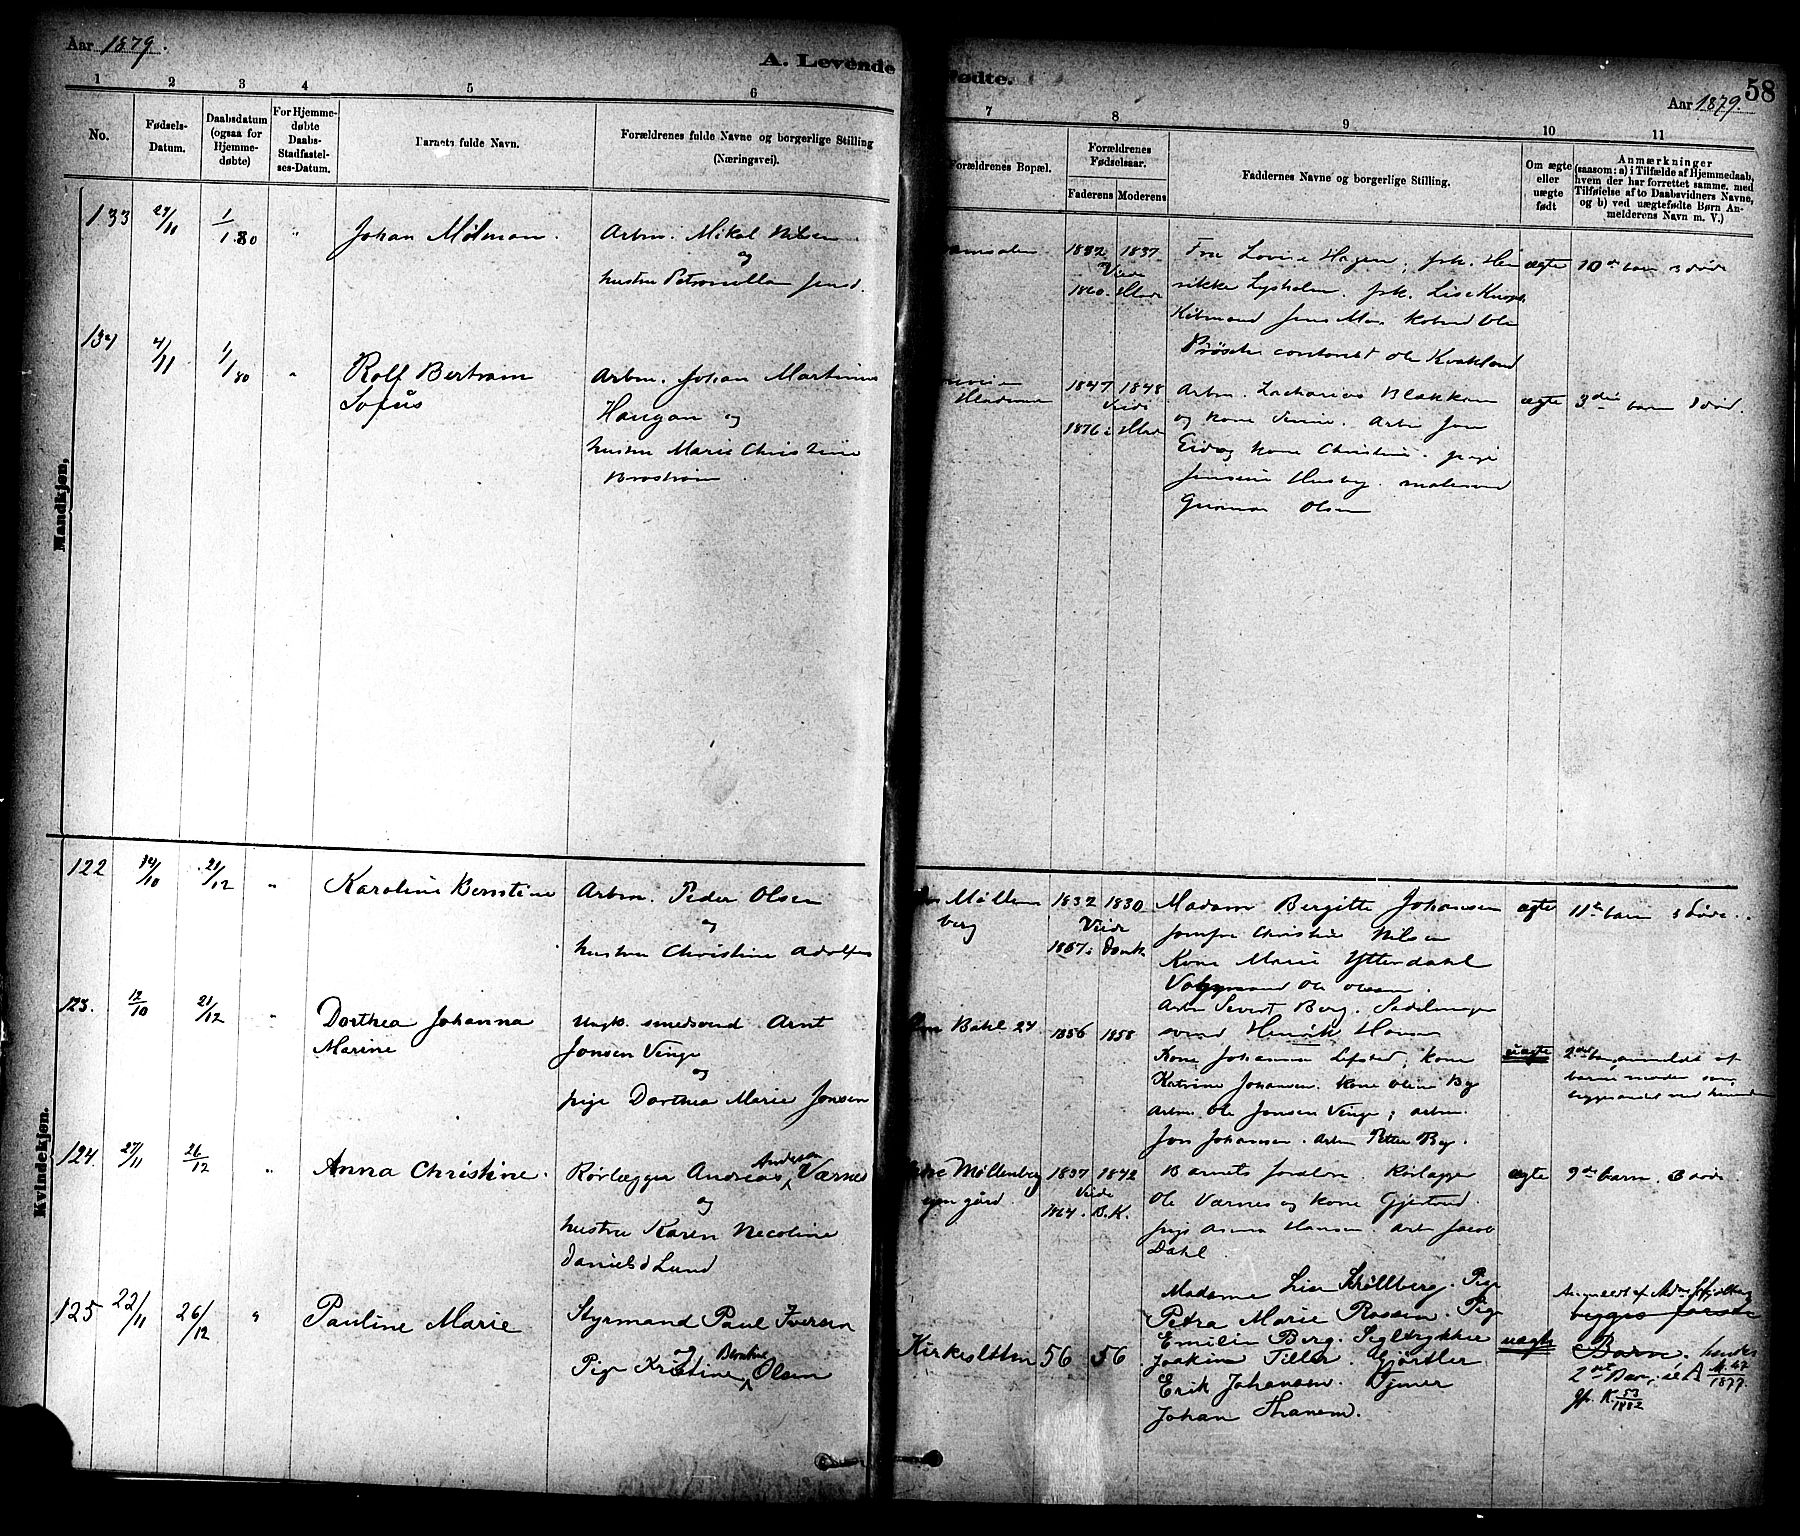 Aar 1879.
A. Levende
Fødte.
58
Aar 1879.
1 2 3 4 5 6
7 8 9 10 11
No.
Fødsels-
Datum.
Daabsdatum
(ogsaa for
Hjemme-
døbte)
For Hjemme-
døbte
Daabs-
Stadfæstel-
ses-Datum.
Barnets fulde Navn.
Forældrenes fulde Navne og borgerlige Stilling
(Næringsvei).
Forældrenes Bopæl.
Forældrenes
Fødselsaar.
Faderens Moderens
Faddernes Navne og borgerlige Stilling.
Om ægte
eller
uægte
født
Anmærkninger
(saasom: a) i Tilfælde af Hjemmedaab,
hvem der har forrettet samme, med
Tilføielse af to Daabsvidners Navne,
og b) ved uægtefødte Børn An-
melderens Navn m. V.)
Mandkjøn.
133
1/1 80
Johan Molman.
Arbm. Mikal Nilsen
og
hustru Petronella
1832 1837
Viede
1860.
Fru Lovise Hagen, frk. Hen
rikke Lysholm. frk. Lise
Kjøbmand Jens
ægte
10de barn 3 døde
134
4/11
1/1 80
"
Rolf Bertram
Sofus
Arbm. Johan Martinus
Haugan og
hustru Marie Christine
Broström
1847 1848
Viede
1876 i
Arbm. Zacharias Blekkan
og kone
Eid og kone Christine. pige
Jensine Husby.
Gunnar Olsen
ægte
3die barn 1 død.
Kvindekjøn.
122
21/12
"
Karoline Berntine
Arbm. Peder Olsen
og
hustru Christine Adolfs
Møllen
berg
1832 1830
Viede
1857 i
Madam Bergitte Johansen
Jomfru Christine Nilsen
Kone Marie Ytterdahl
ægte
11te barn 3 døde.
123.
12/10
21/12
"
Dorthea Johanna
Marine
Ungk. smedsvend Arnt
Jonsen Venge
og
pige Dorthea Marie Jonsen
Bakl. 24
1856 1858
Arbm Sivert Berg. Sadelmager
svend Henrik
Kone Johanna Lefsted, kone
Katrine Johansen. kone Oline By
Arbm. Ole Jonsen Venge; arbm.
Jon Johansen. Arbm Petter By.
uægte
2det barn anmeldt af
barnets moder som
124.
27/11
26/12
"
Anna Christine.
Rørlægger Andreas Andersen Værnes
og
hustru Karen Necoline
Danielsd Lund
Møllenberg
egen gård.
1837 1842
Viede
1864. B.K.
Barnets forældre. Rørlægger
Ole Værnes og kone Gjertrud.
pige Anna Hansen. Arb Jacob
Dahl.
ægte
9de barn. 6 døde.
125
22/11
26/12
"
Pauline Marie
Styrmand Paul Iversen
og
Pige Kristine Berntine Olsen
Kirkesletten
56 56
Madame Lise Krøllberg. Pige
Petra Marie Rossen. Pige
Emilie Berg. Segltrykker
Joakim Tiller. Gjørtler
Erik Johansen.
Johan Thanem.
uægte
begges første
Barn. hendes
2det Barn, se A N.47/1877.
jfr. K. 53/1882